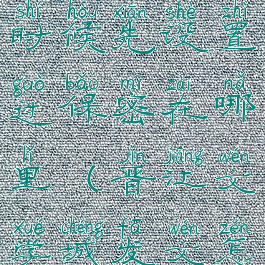 shí hòu xiān shè zhì
时候先设置
guò bǎo mì zài nǎ
过保密在哪
lǐ jìn jiāng wén
里（晋江文
xué chéng fā wén zěn
学城发文怎